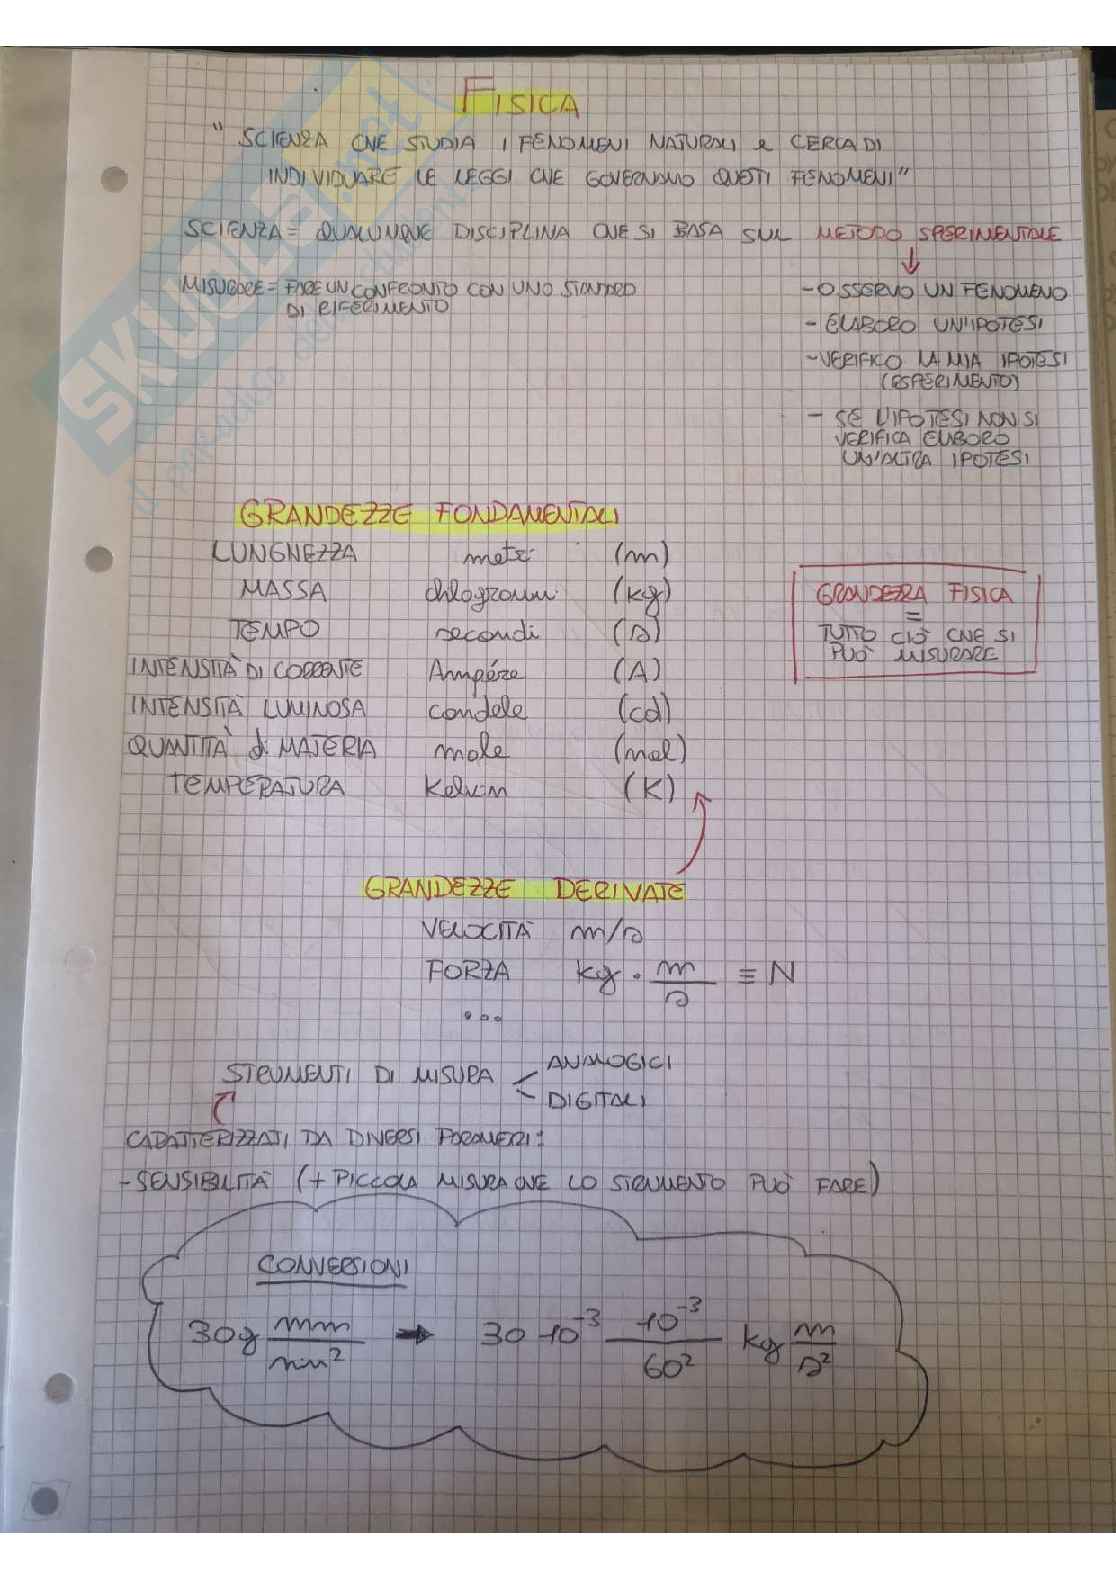 FISICA
" SCIENZA CHE STUDIA I FENOMENI NATURALI e CERCA DI
INDIVIDUARE LE LEGGI CHE GOVERNANO QUESTI FENOMENI"
SCIENZA = QUALUNQUE DISCIPLINA CHE SI BASA SUL METODO SPERIMENTALE
↓
MISURARE = FARE UN CONFRONTO CON UNO STANDARD
DI RIFERIMENTO
- OSSERVO UN FENOMENO
- ELABORO UN'IPOTESI
- VERIFICO LA MIA IPOTESI
(ESPERIMENTO)
- SE L'IPOTESI NON SI
VERIFICA ELABORO
UN'ALTRA IPOTESI
GRANDEZZE FONDAMENTALI
LUNGHEZZA metri (m)
MASSA chilogrammi (kg)
TEMPO secondi (s)
INTENSITÀ DI CORRENTE Ampére (A)
INTENSITÀ LUMINOSA candele (cd)
QUANTITÀ di MATERIA mole (mol)
TEMPERATURA Kelvin (K)
GRANDEZZA FISICA
=
TUTTO CIÒ CHE SI
PUÒ MISURARE
GRANDEZZE DERIVATE
VELOCITÀ m/s
FORZA kg · m/s ≡ N
...
STRUMENTI DI MISURA
ANALOGICI
DIGITALI
CARATTERIZZATI DA DIVERSI PARAMETRI:
- SENSIBILITÀ (+ PICCOLA MISURA CHE LO STRUMENTO PUÒ FARE)
CONVERSIONI
30g mm/min² → 30 · 10⁻³ 10⁻³/60² kg m/s²
SKUOLA.net
il paradiso dello studente